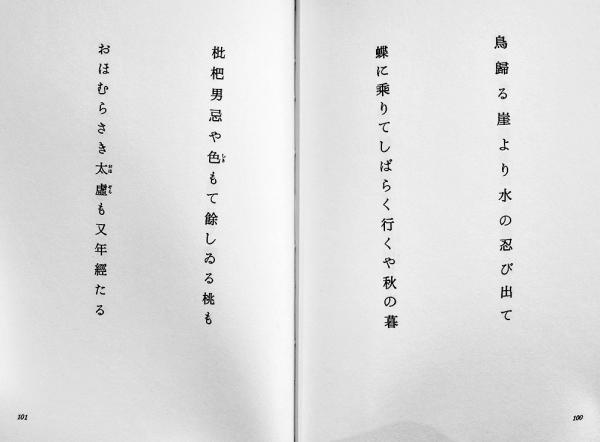 鳥歸る崖より水の忍び出て
蝶に乘りてしばらく行くや秋の暮
100
枇杷男忌や色もて餘しゐる桃も
しき
おほむらさき太虛も又年經たる
おほ ぞら
101